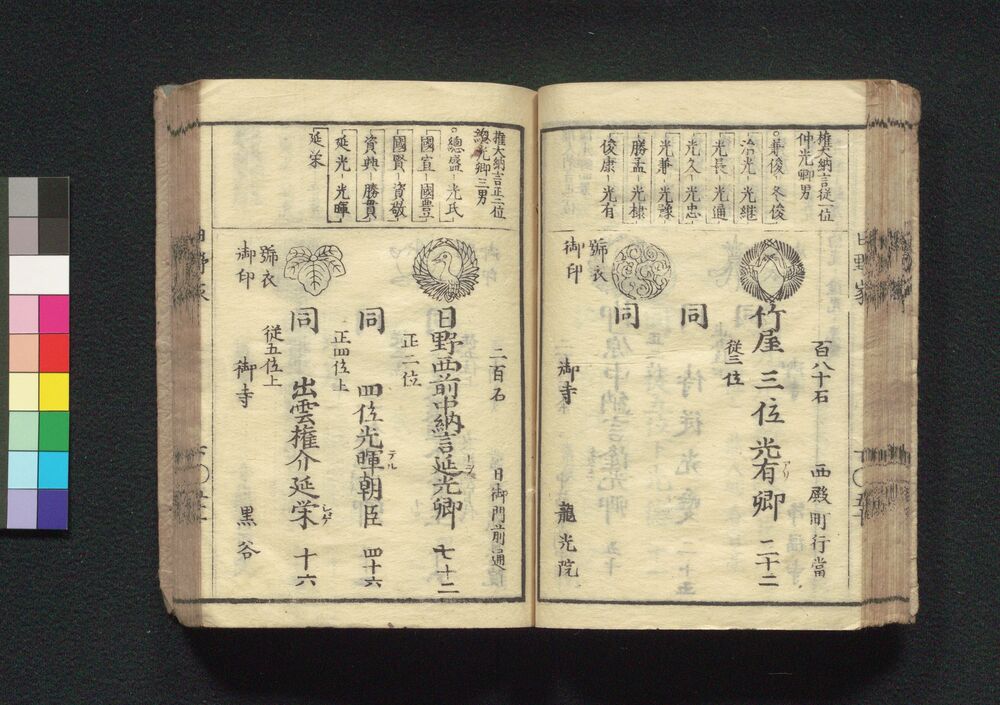 権大納言従一位
仲光卿男
兼俊 冬俊
治光 光継
光長 光通
光久 光忠
光兼 光豫
勝孟 光棣
俊康 光有
百八十石 西殿町行當
竹屋三位光有卿 二十二
アリ
従三位
同
同
號衣
御印
御寺 龍光院
日野家
権大納言正二位
總光卿三男
總盛 光氏
國宣 國豊
國賢 資敬
資典 勝貫
延光 光暉
延栄
二百石 日御門前通
日野西前中納言延光卿 七十二
正二位
同 四位光暉朝臣 四十六
テル
正四位上
同 出雲権介延栄 十六
従五位上
號衣
御印
御寺 黒谷